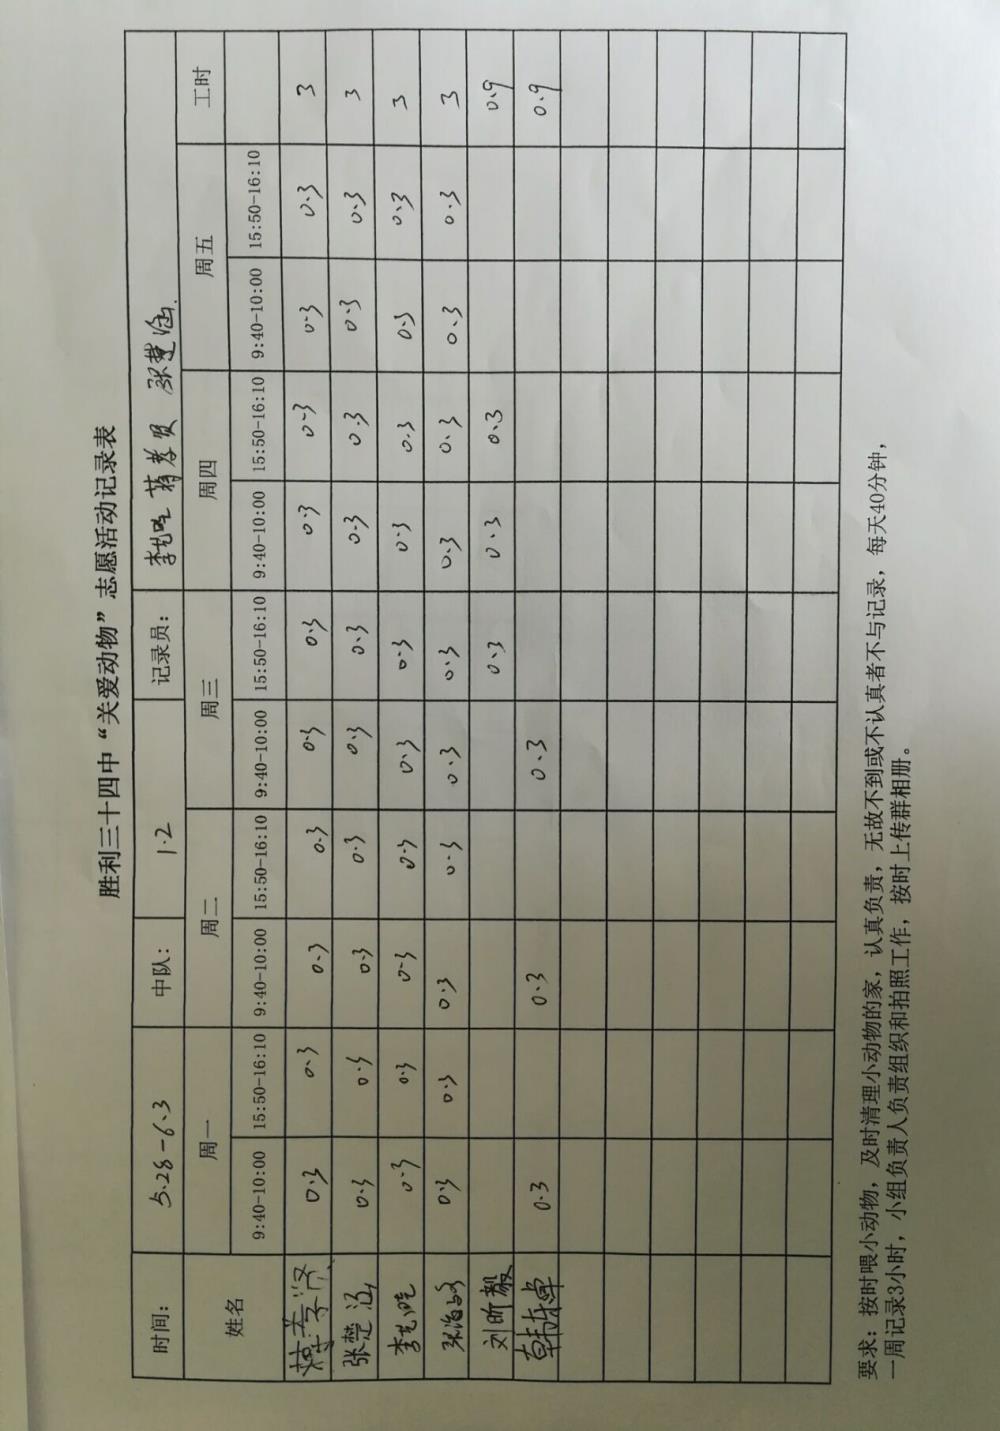 胜利三十四中“关爱动物”志愿活动记录表
时间： 5.28-6.3 中队： 1.2 记录员： 张楚涵
姓名 周一 周二 周三 周四 周五 工时
9:40-10:00 15:50-16:10 9:40-10:00 15:50-16:10 9:40-10:00 15:50-16:10 9:40-10:00 15:50-16:10 9:40-10:00 15:50-16:10
0.3 0.3 0.3 0.3 0.3 0.3 0.3 0.3 0.3 0.3 3
张楚涵 0.3 0.3 0.3 0.3 0.3 0.3 0.3 0.3 0.3 0.3 3
0.3 0.3 0.3 0.3 0.3 0.3 0.3 0.3 0.3 0.3 3
0.3 0.3 0.3 0.3 0.3 0.3 0.3 0.3 0.3 0.3 3
刘昕毅 0.3 0.3 0.3 0.9
韩东卓 0.3 0.3 0.3 0.9
要求：按时喂小动物，及时清理小动物的家，认真负责，无故不到或不认真者不与记录，每天40分钟，
一周记录3小时，小组负责人负责组织和拍照工作，按时上传群相册。